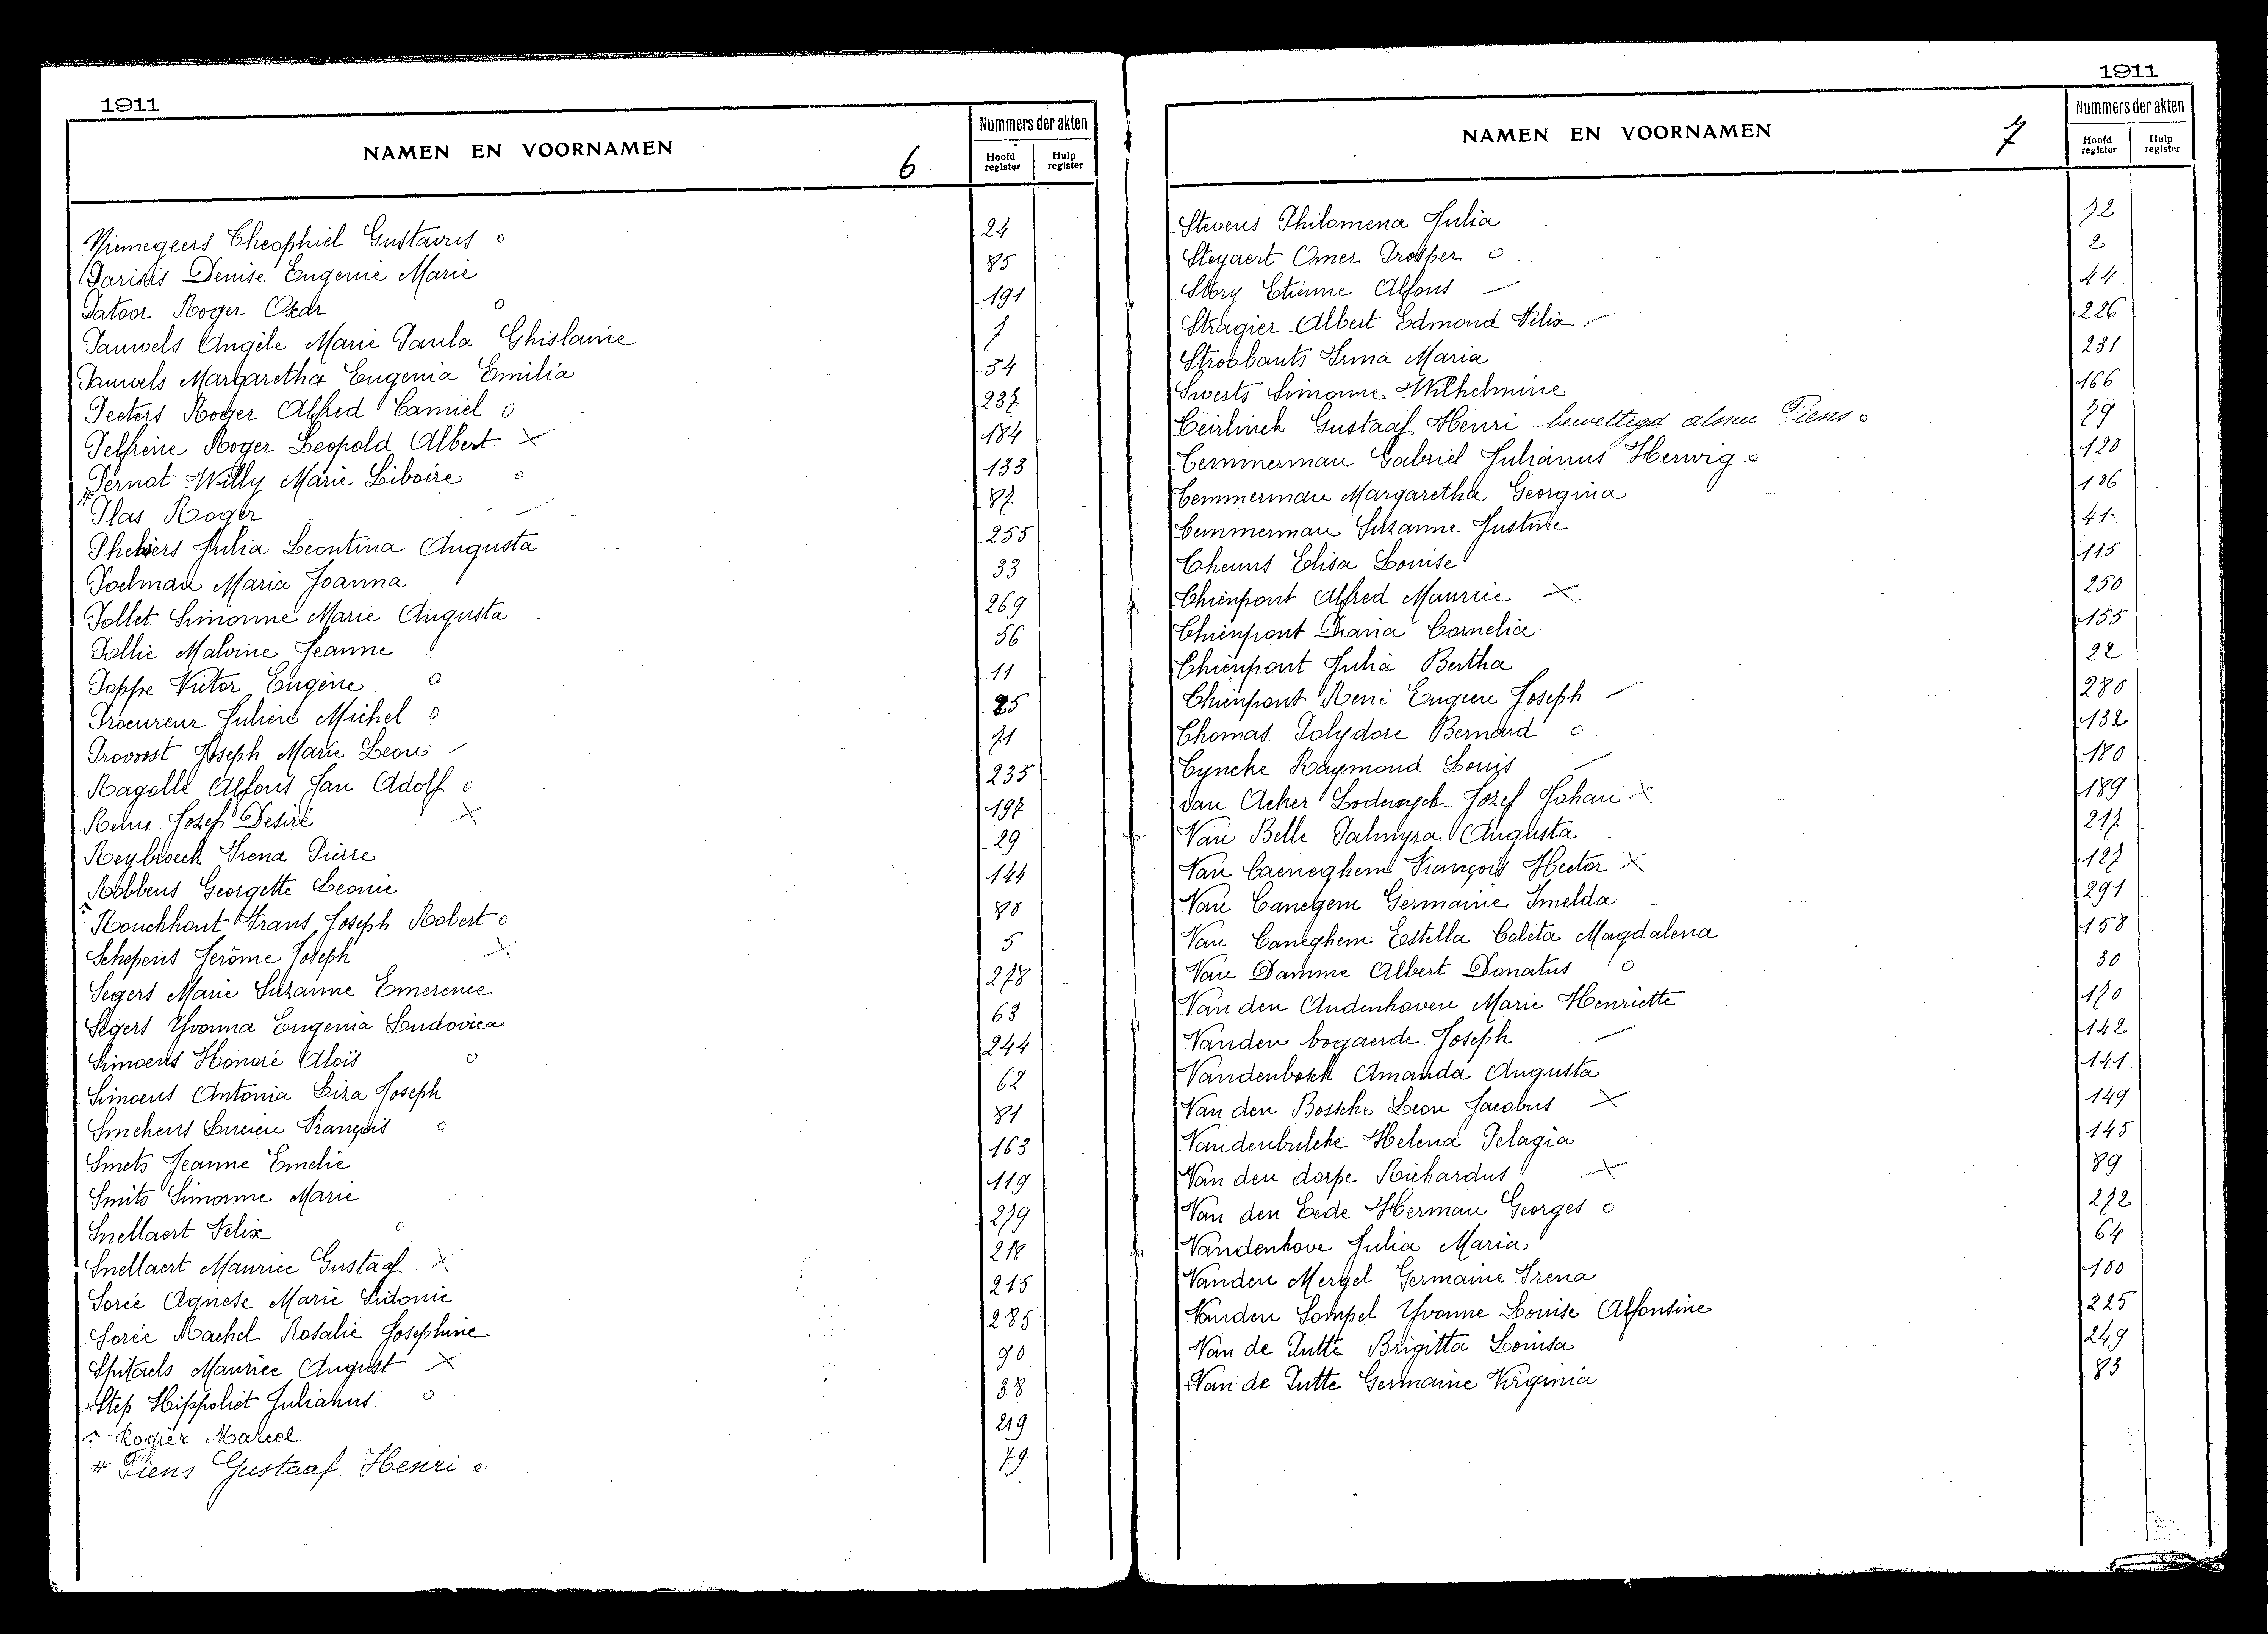 1911
NAMEN EN VOORNAMEN
6
Nummers der akten
Hoofd register
Hulp register
Niemegeers Theophiel Gustavus o 24
Parisis Denise Eugenie Marie 85
Patoor Roger Oscar o 191
Pauwels Angèle Marie Paula Ghislaine 7
Pauwels Margaretha Eugenia Emilia 54
Peeters Roger Alfred Camiel o 237
Pelfrène Roger Leopold Albert × 184
Pernot Willy Marie Liboire o 133
# Plas Roger – 87
Julia Leontina Augusta 255
Poelman Maria Joanna 33
Pollet Simonne Marie Augusta 269
Pollie Malvine Jeanne 56
Poppe Victor Eugène o 11
Procureur Julien Michel o 25
Provoost Joseph Marie Leon – 71
Ragolle Alfons Jan Adolf o 235
Jozef Desiré × 197
Reybroeck Irena Pierre 29
Robbens Georgette Leonie 144
Rouckhout Frans Joseph Robert o 80
Schepens Jerôme Joseph × 5
Segers Marie Suzanne Emerence 278
Segers Yvonna Eugenia Ludovica 63
Simoens Honoré Aloïs o 244
Simoens Antonia Liza Joseph 62
Lucien François o 81
Smets Jeanne Emelie 163
Smits Simonne Marie 119
Snellaert Felix o 279
Snellaert Maurice Gustaaf × 218
Sorée Agnese Marie Sidonie 215
Sorée Rachel Rosalie Josephine 285
Spitaels Maurice August × 90
Step Hippoliet Julianus o 38
Rogier Marcel 219
# Piens Gustaaf Henri o 79
1911
NAMEN EN VOORNAMEN
7
Nummers der akten
Hoofd register
Hulp register
Stevens Philomena Julia 72
Steyaert Omer Prosper o 2
Story Etienne Alfons – 44
Stragier Albert Edmond Felix – 226
Strobbants Irma Maria 231
Swerts Simonne Wilhelmine 166
Teirlinck Gustaaf Henri bewettigd alsnu Piens o 79
Temmerman Gabriel Julianus Herwig o 120
Temmerman Margaretha Georgina 186
Temmerman Suzanne Justine 41
Theuns Elisa Louise 115
Thienpont Alfred Maurice × 250
Thienpont Maria Cornelia 155
Thienpont Julia Bertha 22
Thienpont René Eugien Joseph – 280
Thomas Polydore Bernard o 132
Tyncke Raymond Louis – 180
van Acker Lodewyck Jozef Johan × 189
Van Belle Palmyra Augusta 217
Van Caeneghem François Hector × 127
Van Canegem Germaine Imelda 291
Van Caneghem Estella Coleta Magdalena 158
Van Damme Albert Donatus o 30
Van den Audenhoven Marie Henriette 170
Vanden bogaerde Joseph – 142
Vandenbosch Amanda Augusta 141
Van den Bossche Leon Jacobus × 149
Vandenbulcke Helena Pelagia 145
Van den dorpe Richardus × 89
Van den Eede Herman Georges o 272
Vandenhove Julia Maria 64
Vanden Mergel Germaine Irena 100
Vanden Sompel Yvonne Louise Alfonsine 225
Van de Putte Brigitta Louisa 249
Van de Putte Germaine Virginia 83